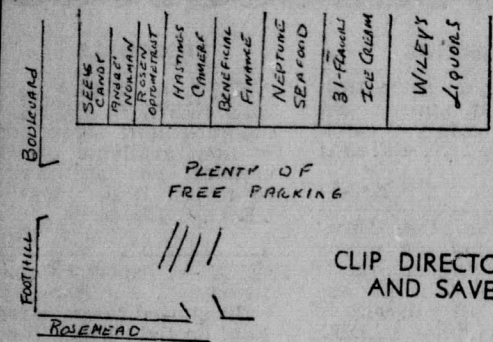 BOULEVARD
SEE'S
CANDY
ANDRE'
NORMAN
ROSEN
OPTOMETRIST
HASTINGS
CAMERA
BENEFICIAL
FINANCE
NEPTUNE
SEAFOOD
31-FLAVORS
ICE CREAM
WILEY'S
LIQUORS
PLENTY OF
FREE PARKING
FOOTHILL
CLIP DIRECTO
AND SAVE
ROSEMEAD